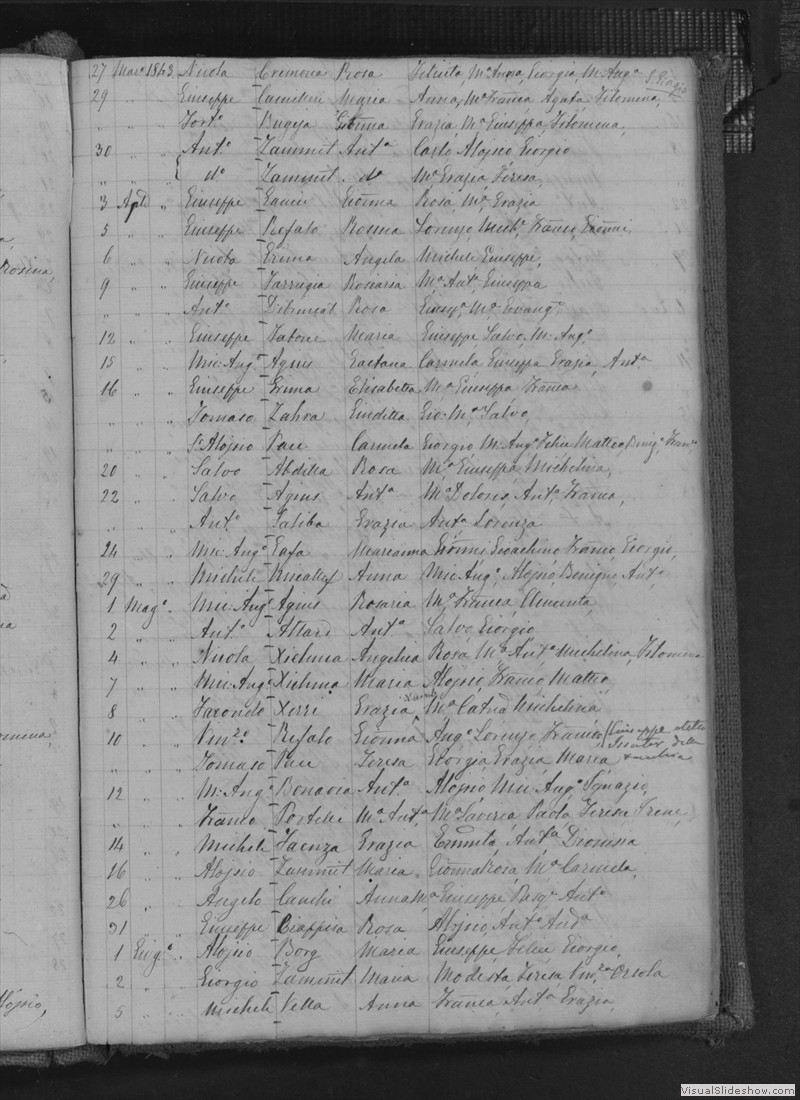 27 Marº 1843 Nicola Cremona Rosa Felicita, Mª Anna, Giorgia, M. Angª
S. Biagio
29 " " Giuseppe Camilleri Maria Anna, Mª Franca Agata, Filomena,
" " " Fortº Bugeja Giõnna Grazia, Mª Giuseppa, Filomena,
30 " " Antº Zammit Antª Carlo Alojsio Giorgio
" " " dº Zammit dª Mª Grazia, Teresa,
3 Aple " Giuseppe Cauci Giõnna Rosa, Mª Grazia
5 " " Giuseppe Refalo Rosina Lorenzo, Michˡ, Franco, Giõnni,
6 " " Nicola Grima Angela Michele Giuseppe,
9 " " Giuseppe Farrugia Rosaria Mª Antª Giuseppa
" " " Antº Rosa Giusepª Mª Evangª
12 " " Giuseppe Tabone Maria Giuseppe Salvº, M. Angº
15 " " Mic: Angº Agius Gaetana Carmela Giuseppa Grazia, Antª
16 " " Giuseppe Grima Elisabetta Mª Giuseppa Franca
" " " Tomaso Zahra Giuditta Gio: Mª Salvº,
" " " Alojsio Pace Carmela Giorgio M. Angº Felice Matteo
20 " " Salvº Abdilla Rosa Mª Giuseppa Michelina,
22 " " Salvº Agius Antª Mª Dolores, Antª, Franca,
" " " Antº Saliba Grazia Antª Lorenza
24 " " Mic: Angº Gafa Marianna Giõnni Gioachino Franco, Giorgio,
29 " " Michele Micallef Anna Mic: Angº, Alojsio, Benigno, Antº,
1 Magº " Mic: Angº Agius Rosaria Mª Franca, Clementa,
2 " " Antº Attard Antª Salvº, Giorgio,
4 " " Nicola Xichma Angelica Rosa Mª Antª Michelina, Filomena
7 " " Mic: Angº Xichma Maria Alojsio, Franco Matteo,
8 " " Facondo Xerri Grazia Mª Catª Michelina
10 " " Vincº Refalo Giõnna Angº Lorenzo Franco (Giuseppe
" " " Tomaso Pace Teresa Giorgia Grazia Maria
12 " " M. Angº Bonavia Antª Alojsio Mic: Angº Ignazio,
" " " Franco Portelli Mª Antª, Mª Saveria Paola Teresa Irene,
14 " " Michele Faenza Grazia Antª Dionisia
16 " " Alojsio Zammit Maria Giõnna Rosa, Mª Carmela,
26 " Angelo Cauchi Anna Mª Giuseppe Pasqˡ Antº
31 " Giuseppe Ciappisa Rosa Alojsio, Antº Andª
1 Giugº " Alojsio Borg Maria Giuseppe, Felice Giorgio,
2 " " Giorgio Zammit Maria Modesta Teresa Vincª Orsola
5 " " Michele Vella Anna Franca, Antª Grazia,
Rosina,
VisualSlideshow.com